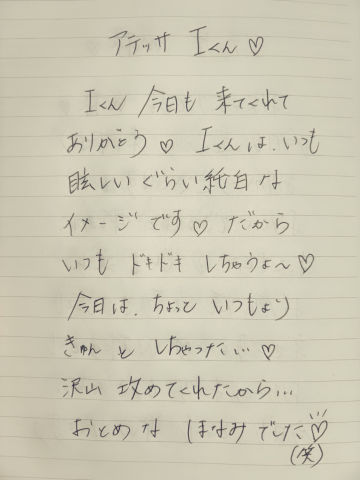 アテッサ Iくん♡
Iくん 今日も 来てくれて
ありがとう♡ Iくんは、いつも
眩しいぐらい純白な
イメージです♡ だから
いつも ドキドキ しちゃうよ〜♡
今日は、ちょっと いつもより
きゅんと しちゃった…♡
沢山 攻めてくれたから…
おとめな ほなみでした♡
(笑)